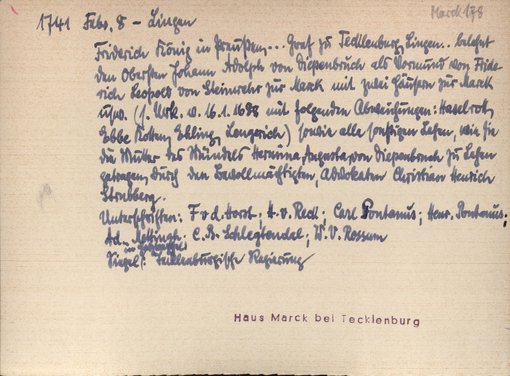 1741 Febr. 8 - Lingen
Marck 178
Friderich König in Preußen... Graf zu Tecklenburg, Lingen.. belehnt
den Obersten Johann Adolph von Diepenbruch als Vormund von Fride-
rich Leopold von Steinwehr zur Marck mit zwei Häusern zur Marck
usw. (s. Urk. v. 16.1.1688 mit folgenden Abweichungen: Haselroth,
Ebbe Kotten, Exling, Lengerich) sowie alle sonstigen Lehen, wie sie
die Mutter des Mündels Hermina Augusta von Diepenbroch zu Lehen
getragen, durch den Bevollmächtigten, Advokaten Christian Henrich
Strubberg.
Unterschriften: F v d. Horst. H. v. Redl; Carl Pontanus; Henr. Pontanus;
Ad. Mettingh; C. B. Schlegtendal; W. V. Rossum
Siegel: Tecklenburgische Regierung
Haus Marck bei Tecklenburg